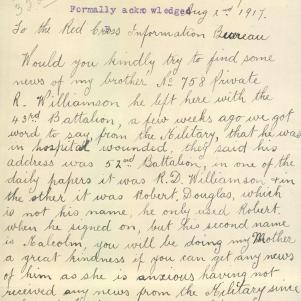 Formally acknowledged
Aug 2nd 1917.
To the Red Cross Information Bureau
Would you kindly try to find some
news of my brother No 758 Private
R. Williamson he left here with the
43rd Battalion, a few weeks ago we got
word to say, from the Military, that he was
in hospital wounded, they said his
address was 52nd Battalion, in one of the
daily papers it was R.D. Williamson & in
the other it was Robert, Douglas, which
is not his name, he only used Robert.
when he signed on, but his second name
is Malcolm, you will be doing my Mother
a great kindness if you can get any news
of him as she is anxious having not
received any news from the Military since